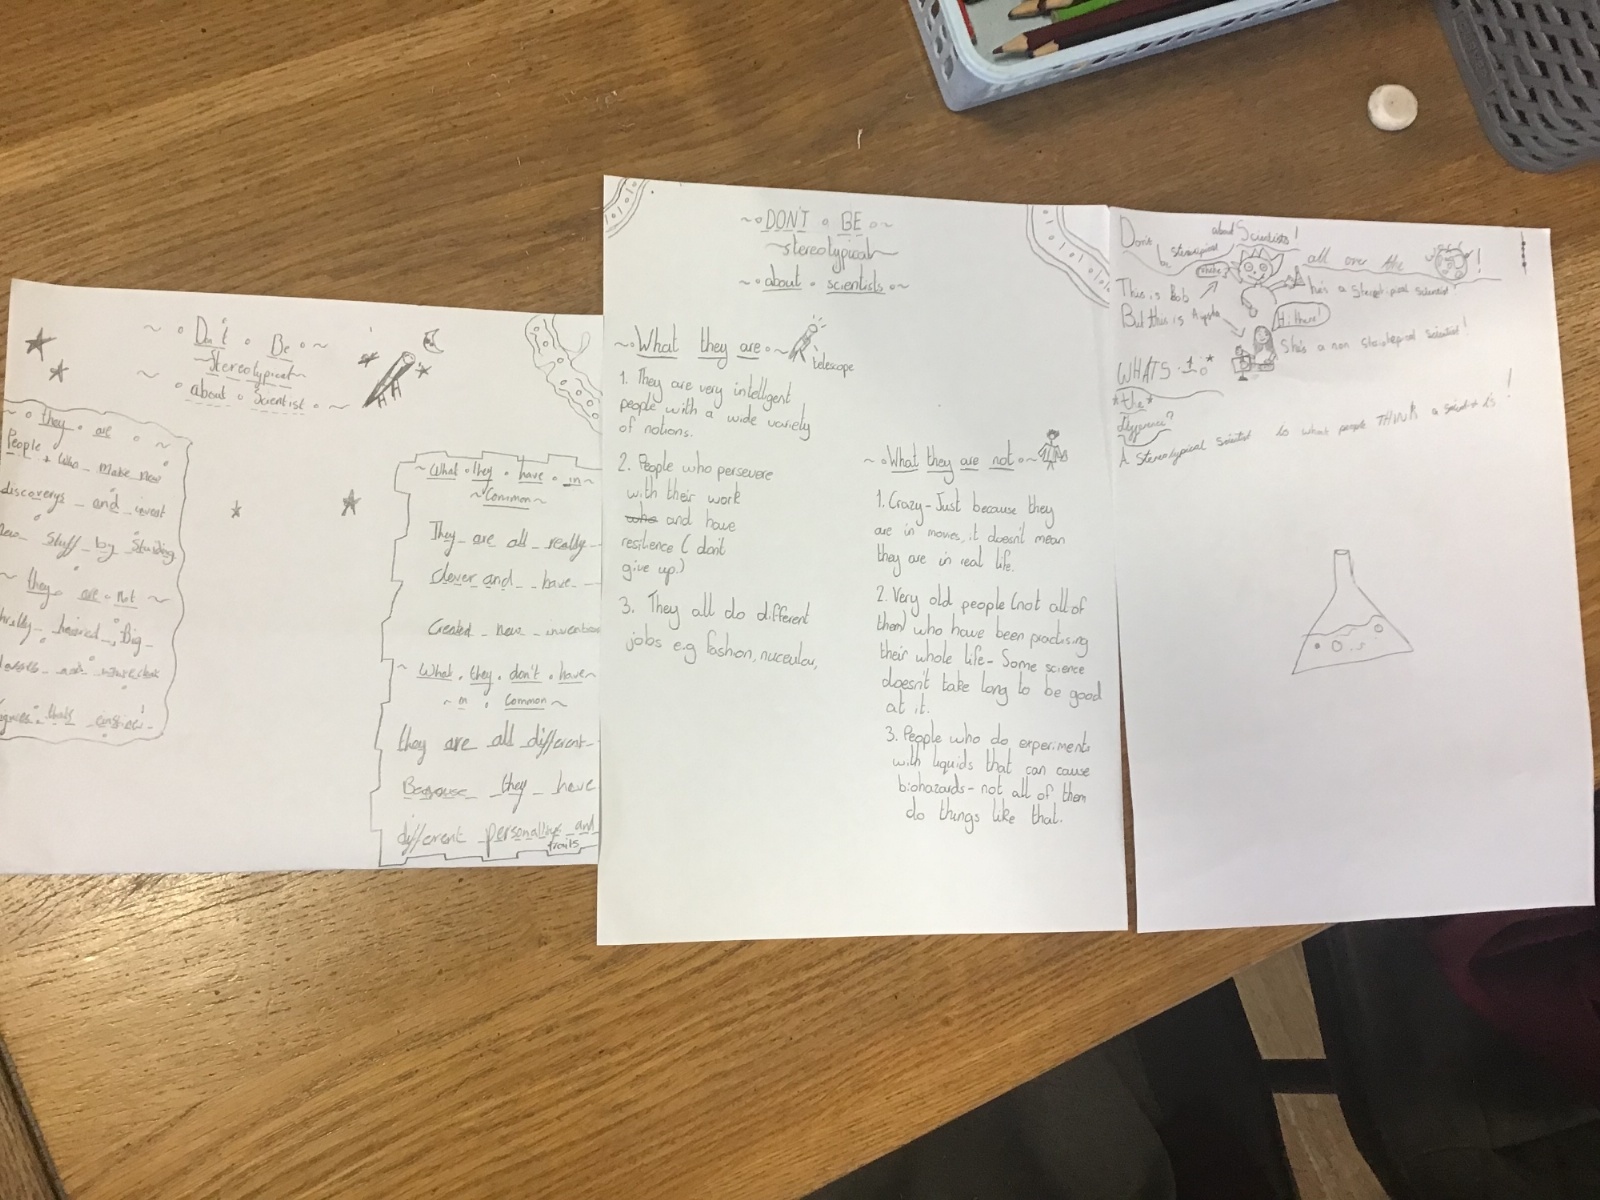 Don't Be
Stereotypical
about Scientist
they are
People who make new
discoverys and invent
new stuff by Studing
they are not
haired, Big
What they have in
Common
They are all really
clever and have
Created new invention
What they don't have
in Common
they are all different
Because they have
different personallitys and
traits
DON'T BE
stereotypical
about scientists
What they are
telescope
1. They are very intelligent
people with a wide variety
of notions.
2. People who persevere
with their work
who and have
resilience ( don't
give up.)
3. They all do different
jobs e.g fashion, nuceular,
What they are not
1. Crazy - Just because they
are in movies, it doesn't mean
they are in real life.
2. Very old people (not all of
them) who have been practising
their whole life - Some science
doesn't take long to be good
at it.
3. People who do experiments
with liquids that can cause
biohazards - not all of them
do things like that.
Don't be about Scientists!
all over the !
This is Bob hehe he's a scientist!
But this is Hi there!
She's a non scientist!
WHATS
the
A Stereotypical scientist is what people THINK a scientist is!